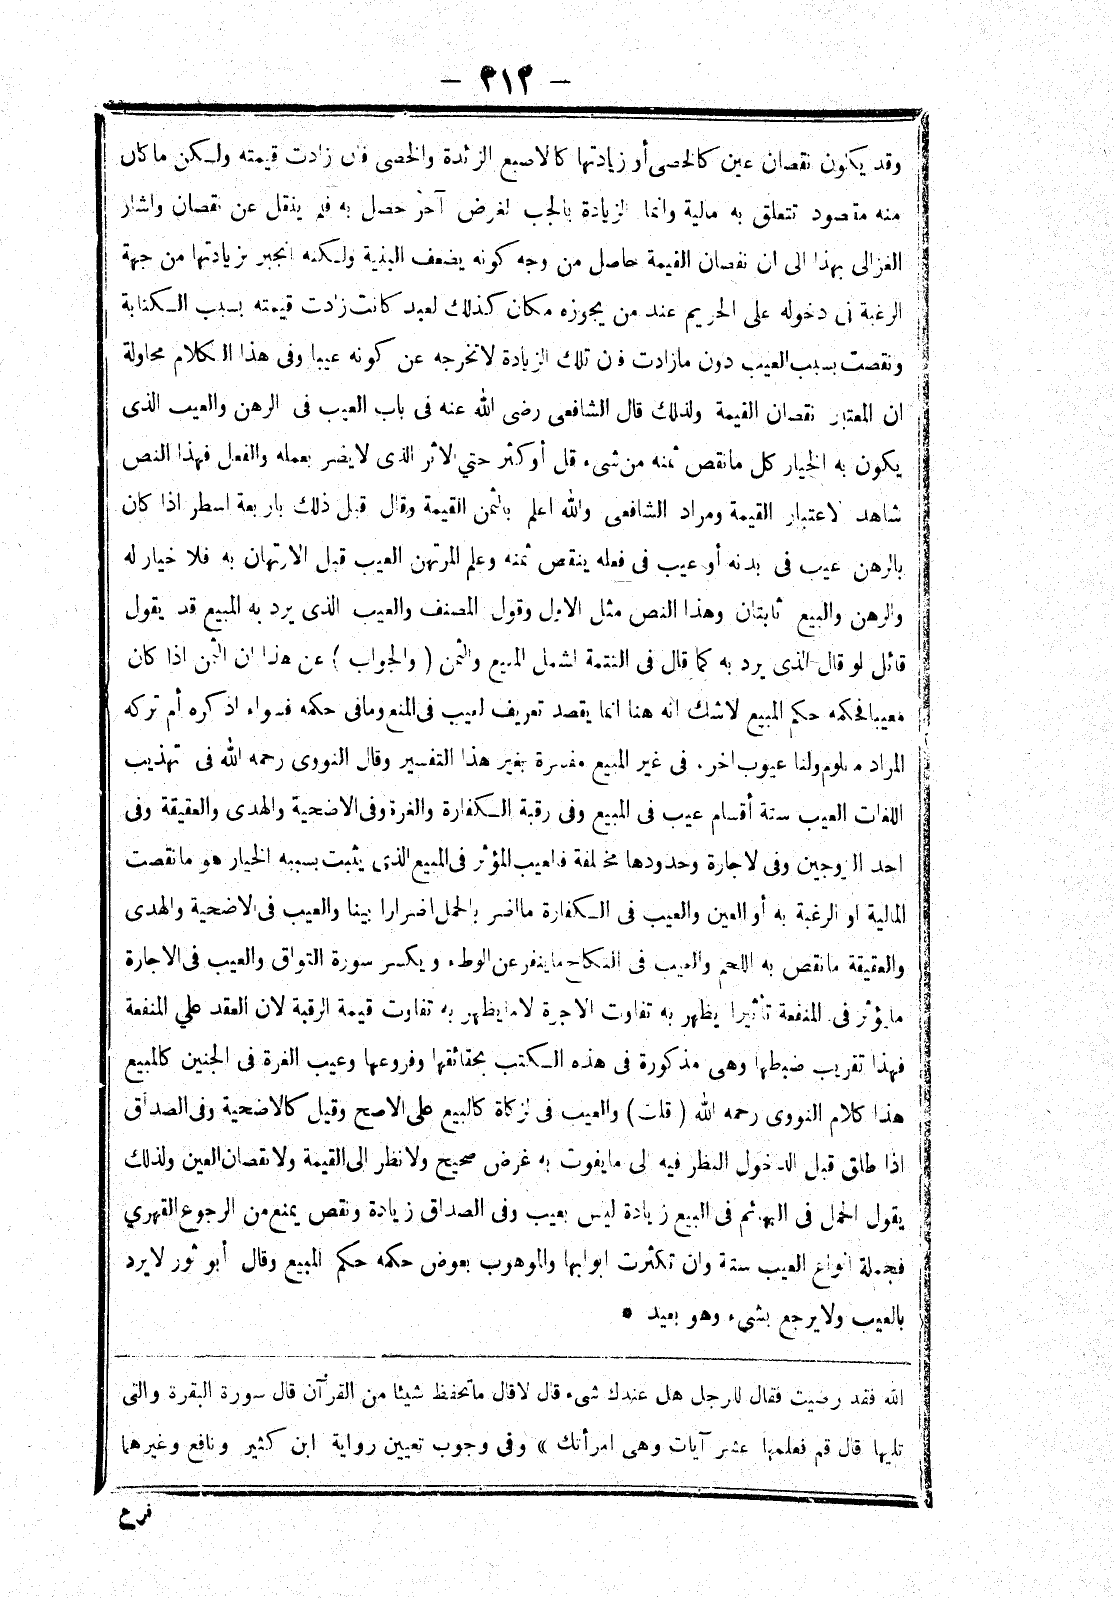 — ٣١٣ —
وقد يكون نقصان عين كالخصى أو زيادتها كالاصبع الزائدة والخصى فان زادت قيمته ولكن ما كان
منه مقصود تتعلق به مالية وانما الزيادة بالجب لغرض آخر حصل به فلم ينفل عن نقصان واشار
الغزالى بهذا الى ان نقصان القيمة حاصل من وجه كونه يضعف البنية ولكنه انجبر بزيادتها من جهة
الرغبة فى دخوله على الحريم عند من يجوزه مكان كذلك لعبد كانت زادت قيمته بسبب الكتابة
ونقصت بسبب العيب دون مازادت فان تلك الزيادة لاتخرجه عن كونه عيبا وفى هذا الكلام محاولة
ان المعتبر نقصان القيمة ولذلك قال الشافعى رضى الله عنه فى باب العيب فى الرهن والعيب الذى
يكون به الخيار كل مانقص ثمنه من شىء قل أو كثر حتي الاثر الذى لايضر بعمله والفعل فهذا النص
شاهد لاعتبار القيمة ومراد الشافعى والله اعلم بالثمن القيمة وقال قبل ذلك باربعة اسطر اذا كان
بالرهن عيب فى بدنه أو عيب فى فعله ينقص ثمنه وعلم المرتهن العيب قبل الارتهان به فلا خيار له
والرهن والبيع ثابتان وهذا النص مثل الاول وقول المصنف والعيب الذى يرد به المبيع قد يقول
قائل لو قال الذى يرد به كما قال فى التتمة لشمل المبيع والثمن ( والجواب ) عن هذا ان الثمن اذا كان
معيبا فحكمه حكم المبيع لاشك انه هنا انما يقصد تعريف لعيب فى المنع ومافى حكمه فسواء اذكره أم تركه
المراد معلوم ولنا عيوب اخر. فى غير المبيع مفسرة بغير هذا التفسير وقال النووى رحمه الله فى تهذيب
اللغات العيب ستة أقسام عيب فى المبيع وفى رقبة الكفارة والغرة وفى الاضحية والهدى والعقيقة وفى
احد الزوجين وفى لاجارة وحدودها مختلفة فالعيب المؤثر فى المبيع الذى يثبت بسببه الخيار هو مانقصت
المالية او الرغبة به أو العين والعيب فى الكفارة مااضر بالحمل اضرارا بينا والعيب فى الاضحية والهدى
والعقيقة مانقص به اللحم والعيب فى النكاح ماينفر عن الوطء ويكسر سورة التواق والعيب فى الاجارة
مايؤثر فى المنفعة تأثيرا يظهر به تفاوت الاجرة لامايظهر به تفاوت قيمة الرقبة لان العقد علي المنفعة
فهذا تقريب ضبطها وهى مذكورة فى هذه الكتب بحقائقها وفروعها وعيب الغرة فى الجنين كالمبيع
هذا كلام النووى رحمه الله ( قلت ) والعيب فى لزكاة كالبيع على الاصح وقيل كالاضحية وفى الصداق
اذا طلق قبل الدخول النظر فيه الى مايفوت به غرض صحيح ولانظر الى القيمة ولانقصان العين ولذلك
يقول الحمل فى البهائم فى البيع زيادة ليس بعيب وفى الصداق زيادة ونقص يمنع من الرجوع القهري
فجملة انواع العيب ستة وان تكثرت ابوابها والموهوب بعوض حكمه حكم المبيع وقال أبو ثور لايرد
بالعيب ولايرجع بشيء وهو بعيد *
الله فقد رضيت فقال للرجل هل عندك شىء قال لاقال ماتحفظ شيئا من القرآن قال سورة البقرة والتى
تليها قال قم فعلمها عشر آيات وهى امرأتك » وفى وجوب تعيين رواية ابن كثير ونافع وغيرهما
فرع